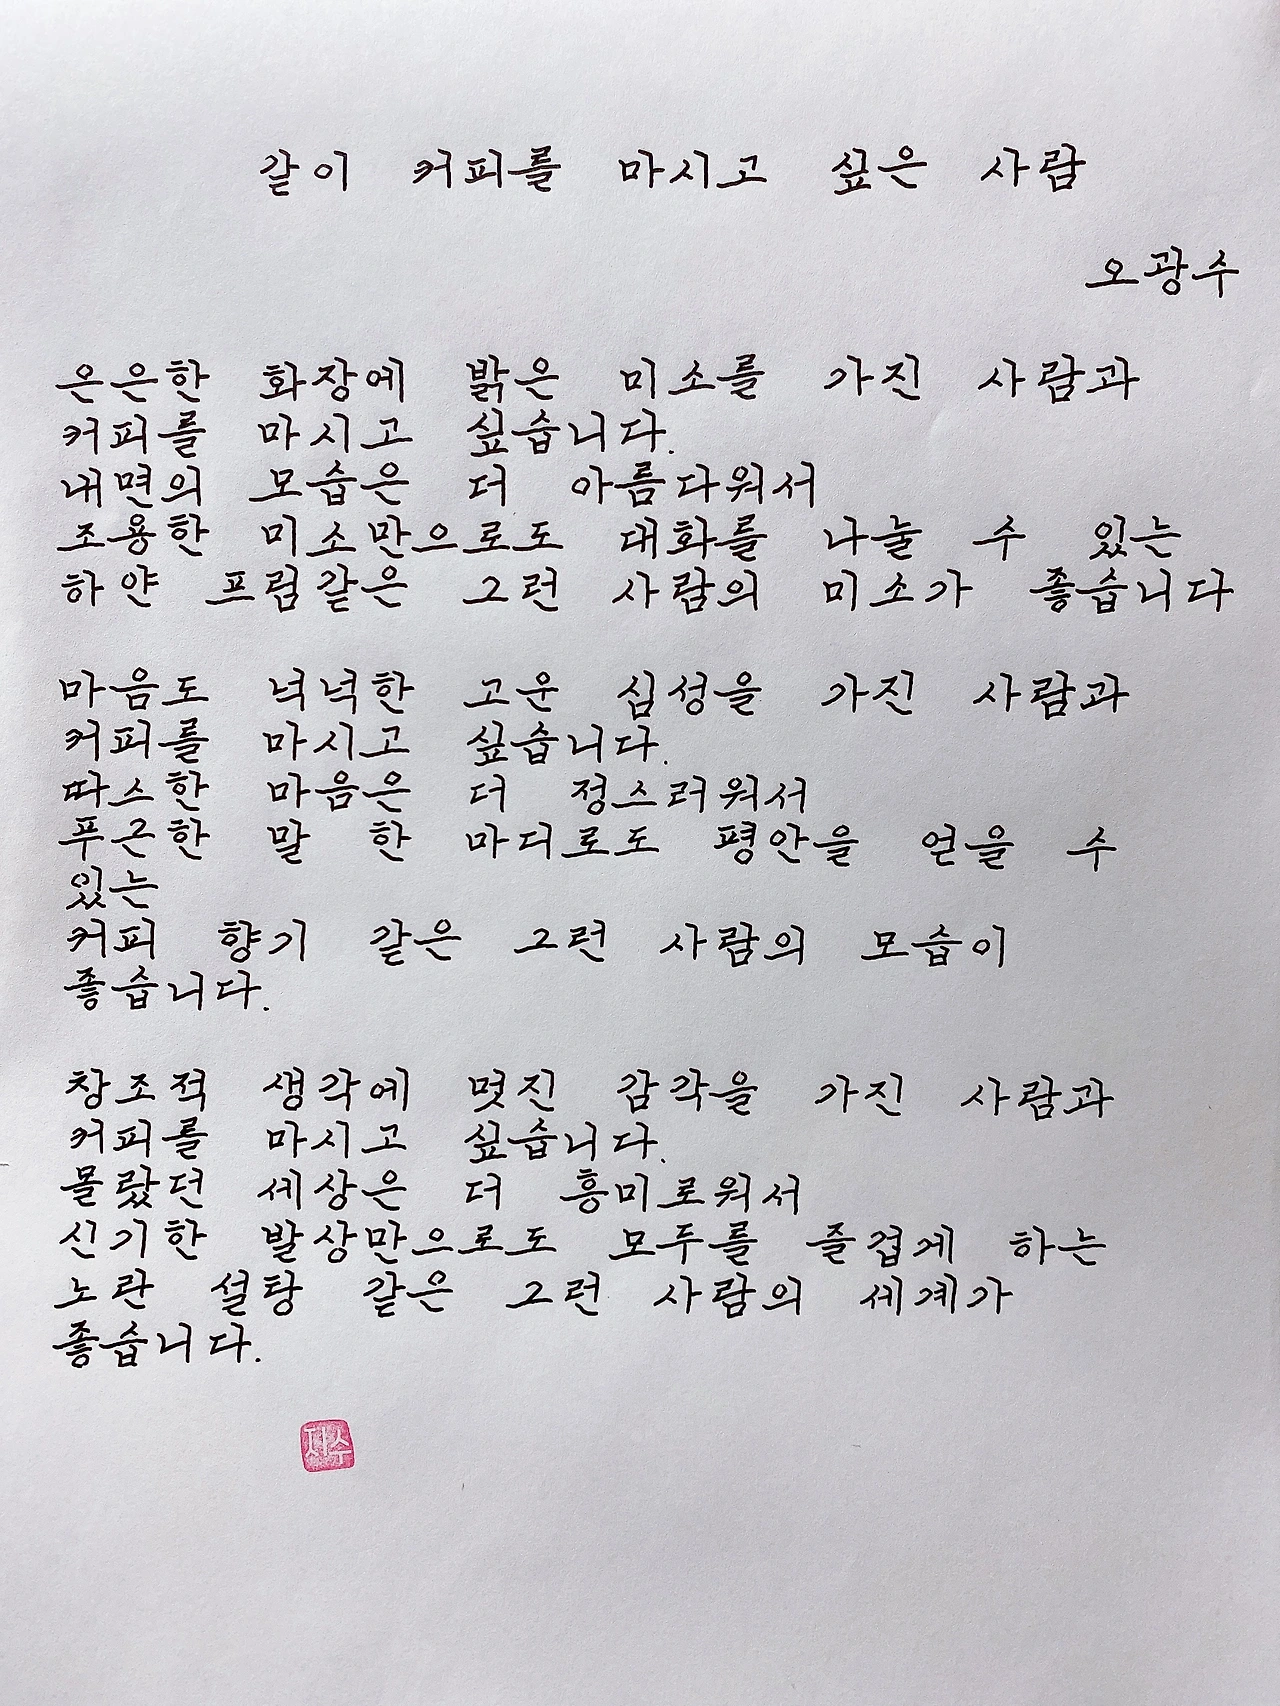 같이 커피를 마시고 싶은 사람
오광수
은은한 화장에 밝은 미소를 가진 사람과
커피를 마시고 싶습니다.
내면의 모습은 더 아름다워서
조용한 미소만으로도 대화를 나눌 수 있는
하얀 프림같은 그런 사람의 미소가 좋습니다
마음도 넉넉한 고운 심성을 가진 사람과
커피를 마시고 싶습니다.
따스한 마음은 더 정스러워서
푸근한 말 한 마디로도 평안을 얻을 수
있는
커피 향기 같은 그런 사람의 모습이
좋습니다.
창조적 생각에 멋진 감각을 가진 사람과
커피를 마시고 싶습니다.
몰랐던 세상은 더 흥미로워서
신기한 발상만으로도 모두를 즐겁게 하는
노란 설탕 같은 그런 사람의 세계가
좋습니다.